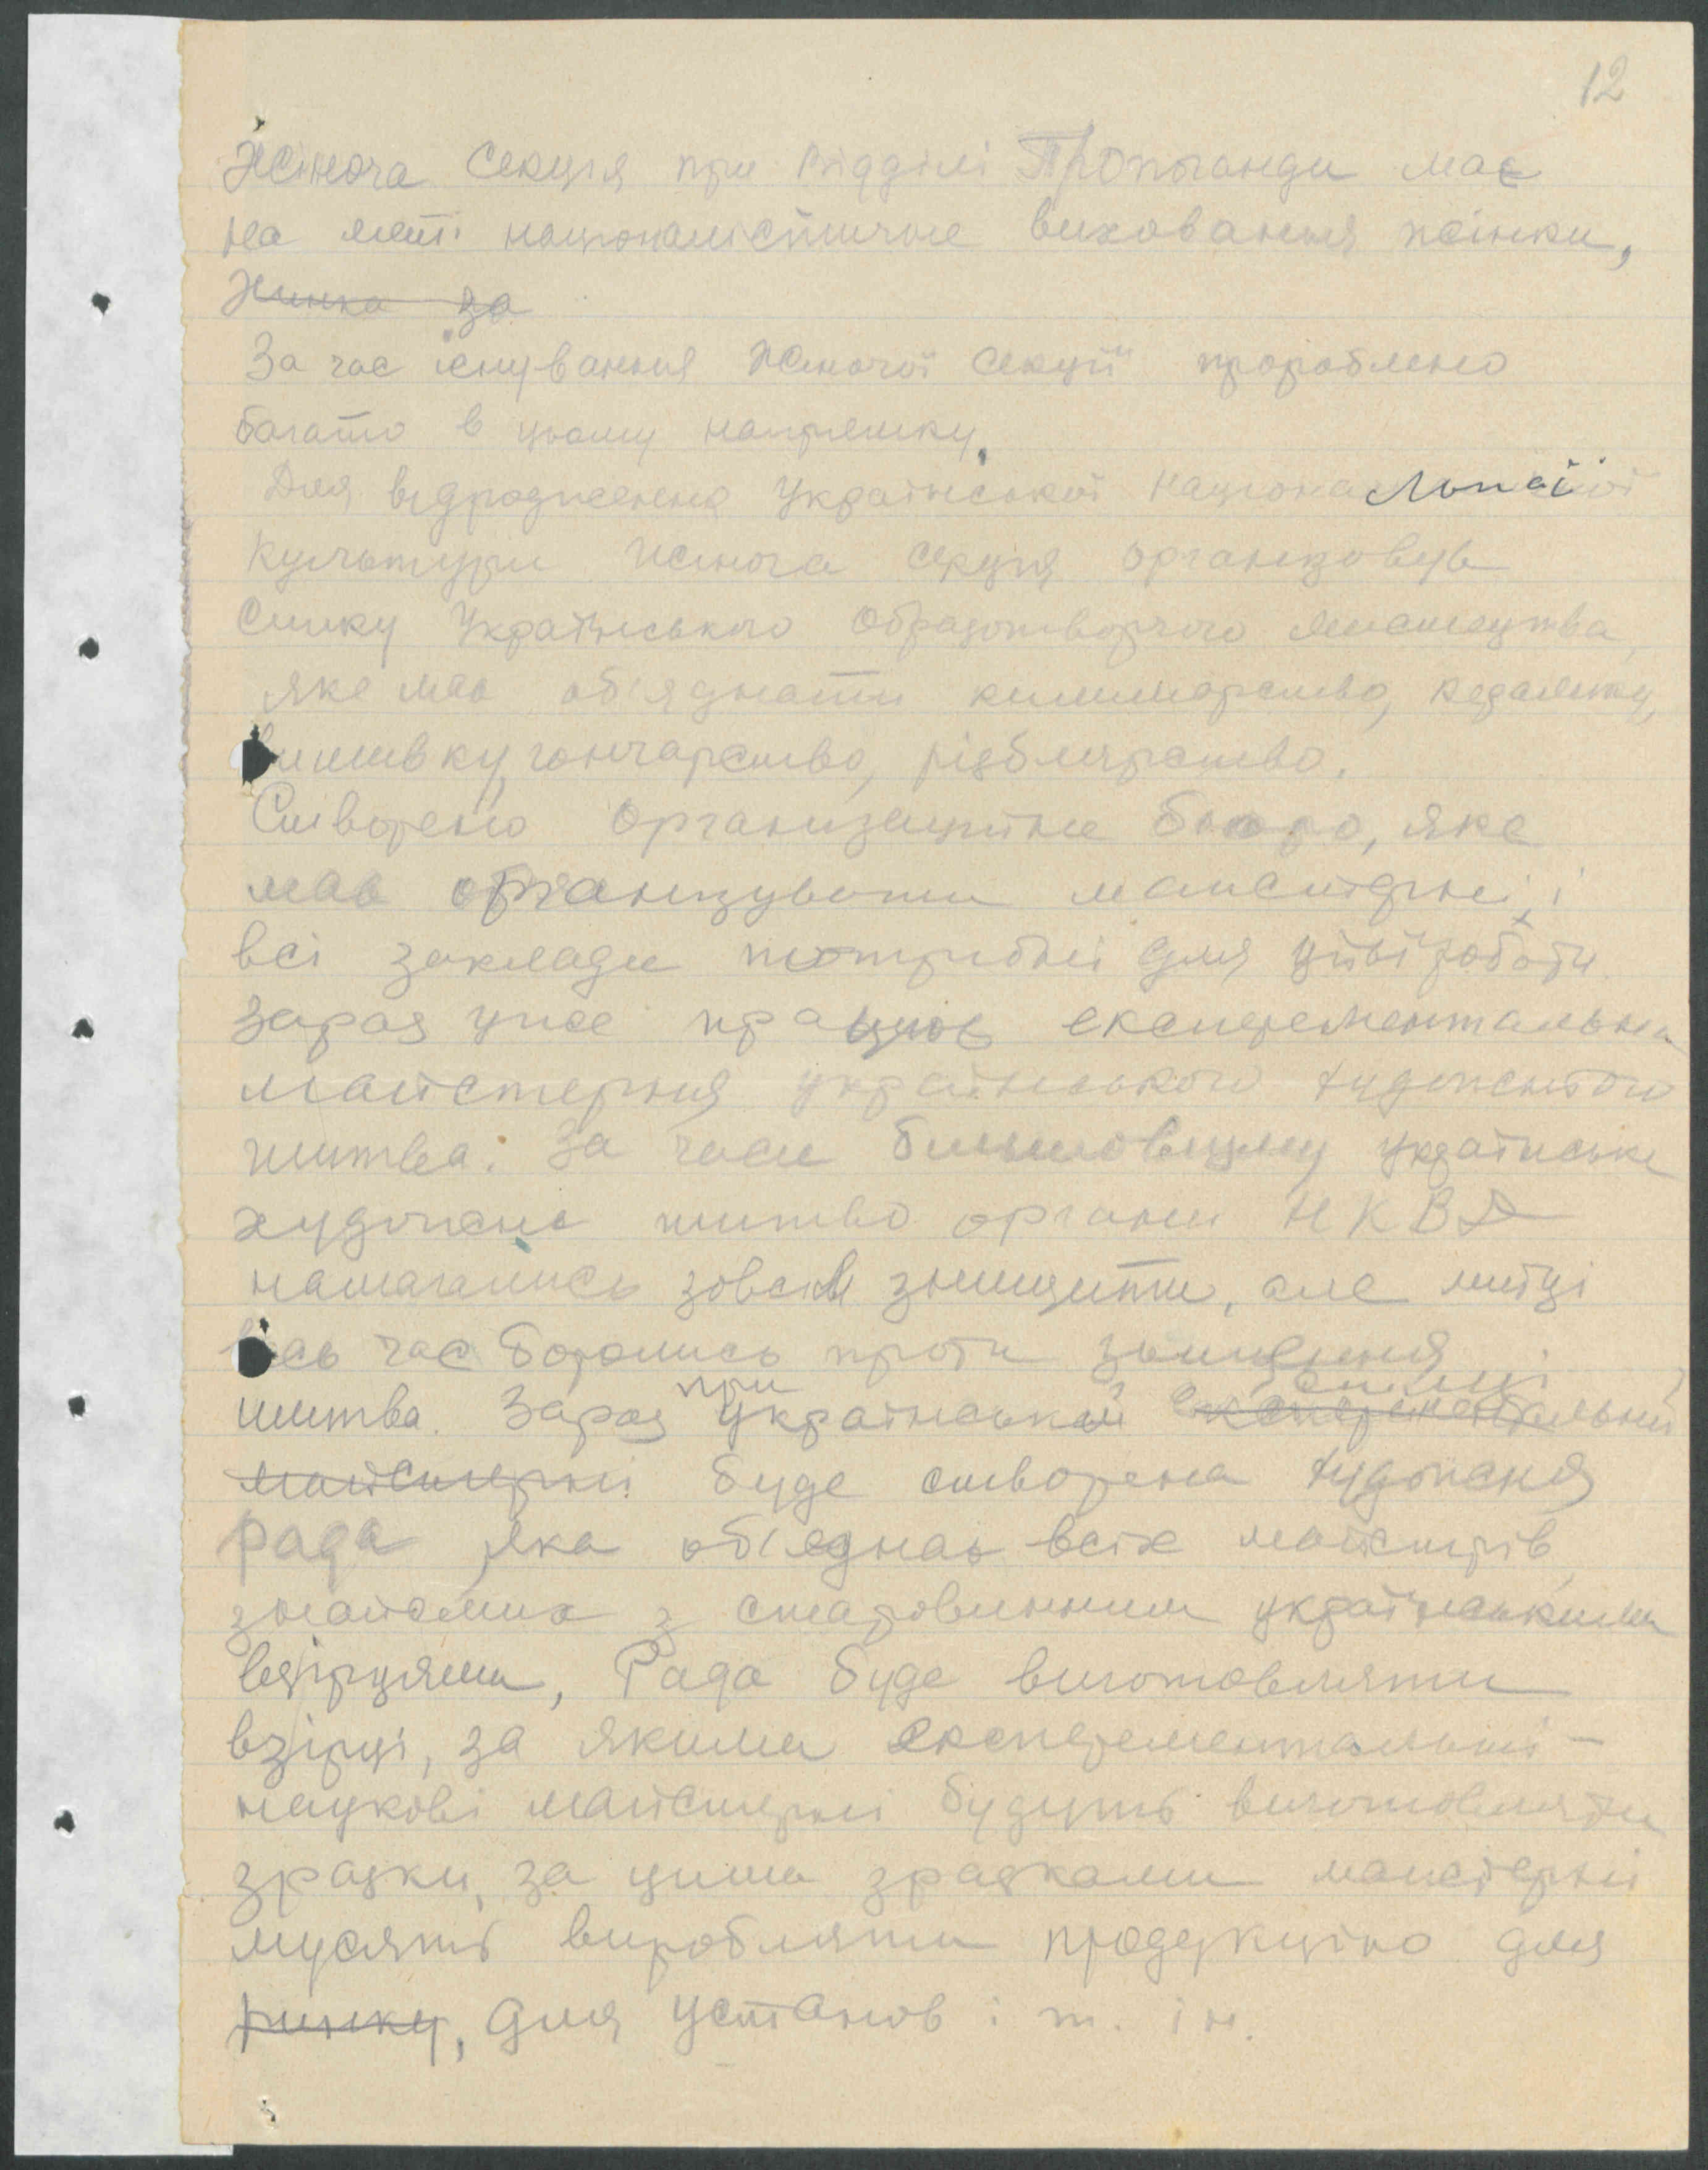 12
Жіноча Секція при Відділі Пропаганди має
на меті націоналістичне виховання жінки,
Жинка за
За час існування Жіночої Секції пророблено
багато в цьому напрямку.
Для відродження Української Націона льної
культури жіноча секція организовує
Спілку Українського Образотворчого мистецтва,
яке має об'єднати килимарство,
вишивку, гончарство, різблярство.
Створено Организаційне бюро, яке
має організувати майстерні, і
всі заклади потрибні для цієї роботи.
Зараз уже працює експерементальна
майстерня українського художнього
шитва. За часи большовизму українське
художнє шитво органи НКВД
намагались зовсім знищити, але митці
весь час боролись проти знищення
шитва. Зараз при Українській експерементальній спілці
майстерні буде створена художня
рада яка об'єднає всіх майстрів,
знайомих з старовинними українськими
взірцями, Рада буде виготовляти
взірці, за якими експерементальні-
наукові майстерні будуть виготовляти
зразки, за цими зразками майстерні
мусять виробляти продукцію для
ринку, для установ і т. ін.